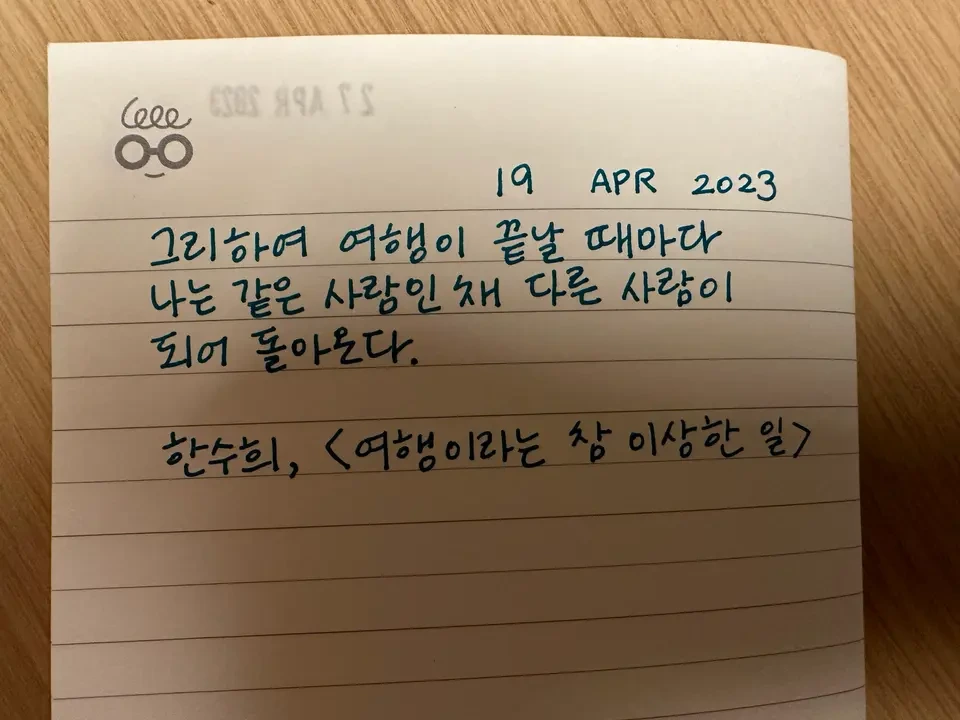 27 APR 2023
19 APR 2023
그리하여 여행이 끝날 때마다
나는 같은 사람인 채 다른 사람이
되어 돌아온다.
한수희, <여행이라는 참 이상한 일>